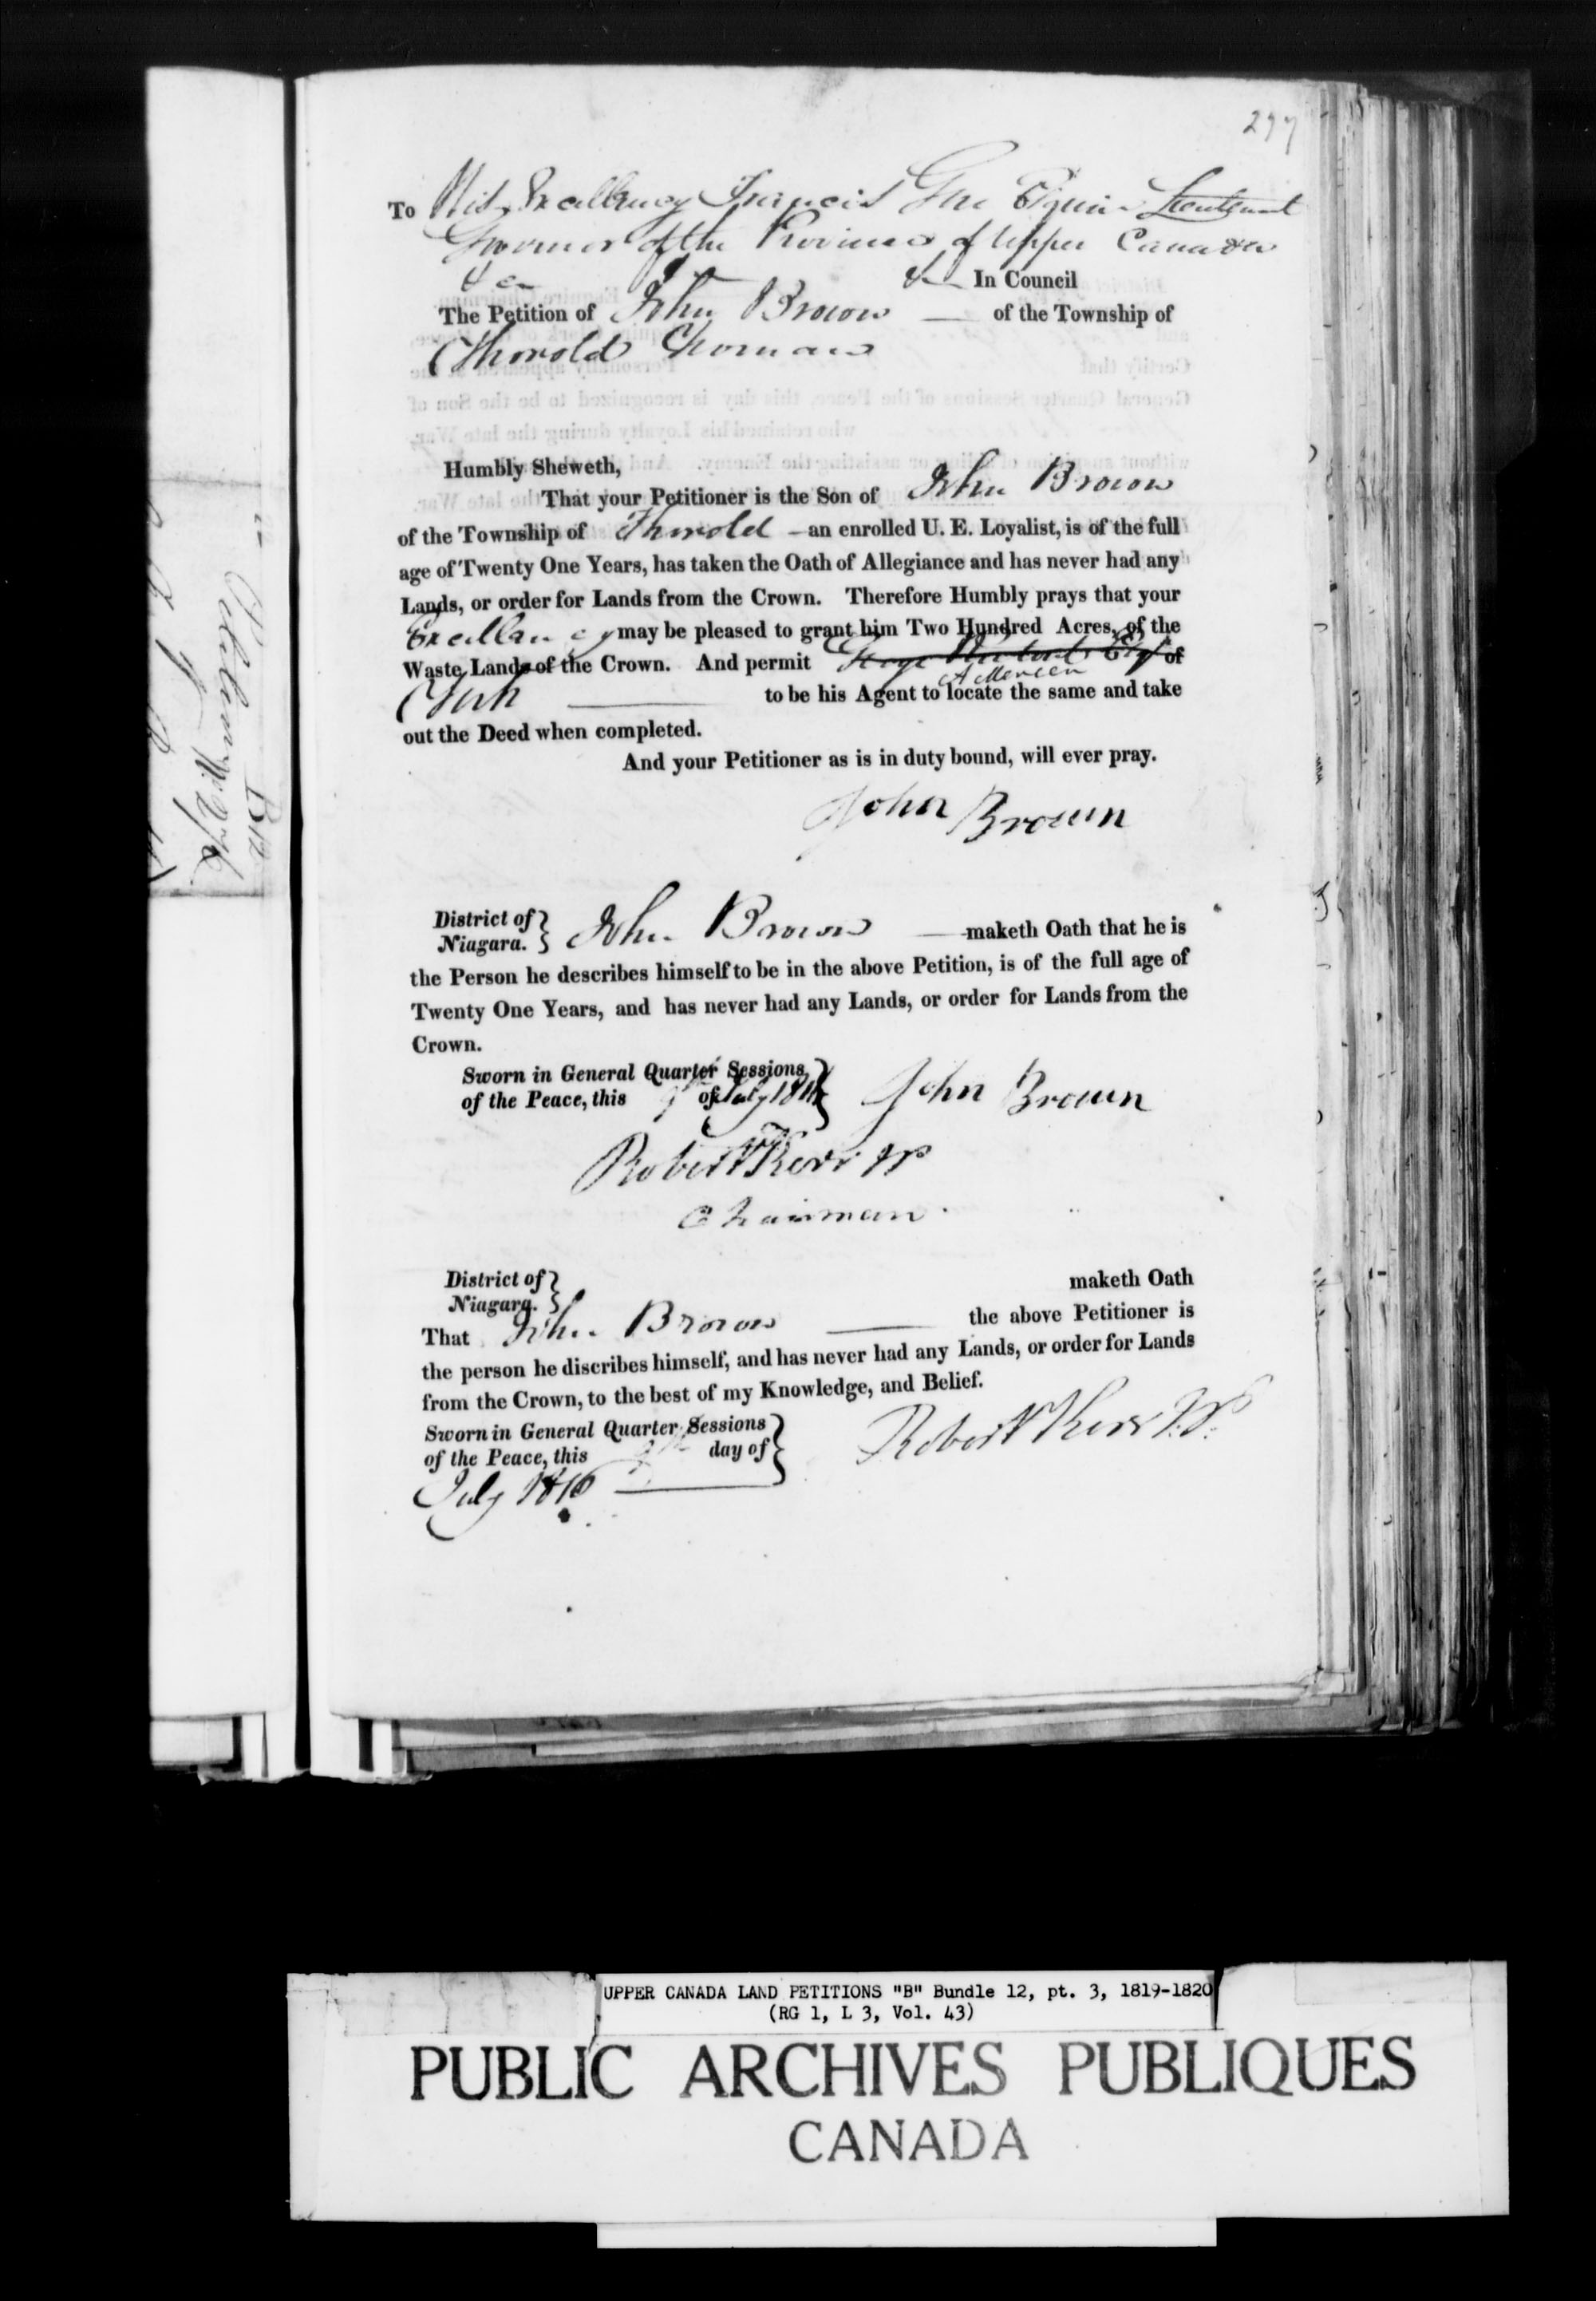 297
To His Excellency Francis Gore Esquire Lieutenant
Governor of the Province of Upper Canada
&c &c In Council
The Petition of John Brown of the Township of
Thorold Yeoman
Humbly Sheweth,
That your Petitioner is the Son of John Brown
of the Township of Thorold - an enrolled U. E. Loyalist, is of the full
age of Twenty One Years, has taken the Oath of Allegiance and has never had any
Lands, or order for Lands from the Crown. Therefore Humbly prays that your
Excellency may be pleased to grant him Two Hundred Acres, of the
Waste Lands of the Crown. And permit of
A Mercer
York to be his Agent to locate the same and take
out the Deed when completed.
And your Petitioner as is in duty bound, will ever pray.
John Brown
District of
Niagara. } John Brown maketh Oath that he is
the Person he describes himself to be in the above Petition, is of the full age of
Twenty One Years, and has never had any Lands, or order for Lands from the
Crown.
Sworn in General Quarter Sessions
of the Peace, this 9th of July 1816 } John Brown
Robert Kerr JP
Chairman.
District of
Niagara. } maketh Oath
That John Brown the above Petitioner is
the person he discribes himself, and has never had any Lands, or order for Lands
from the Crown, to the best of my Knowledge, and Belief.
Sworn in General Quarter Sessions
of the Peace, this 9th day of } Robert Kerr J.P.
July 1816
UPPER CANADA LAND PETITIONS "B" Bundle 12, pt. 3, 1819-1820
(RG 1, L 3, Vol. 43)
PUBLIC ARCHIVES PUBLIQUES
CANADA